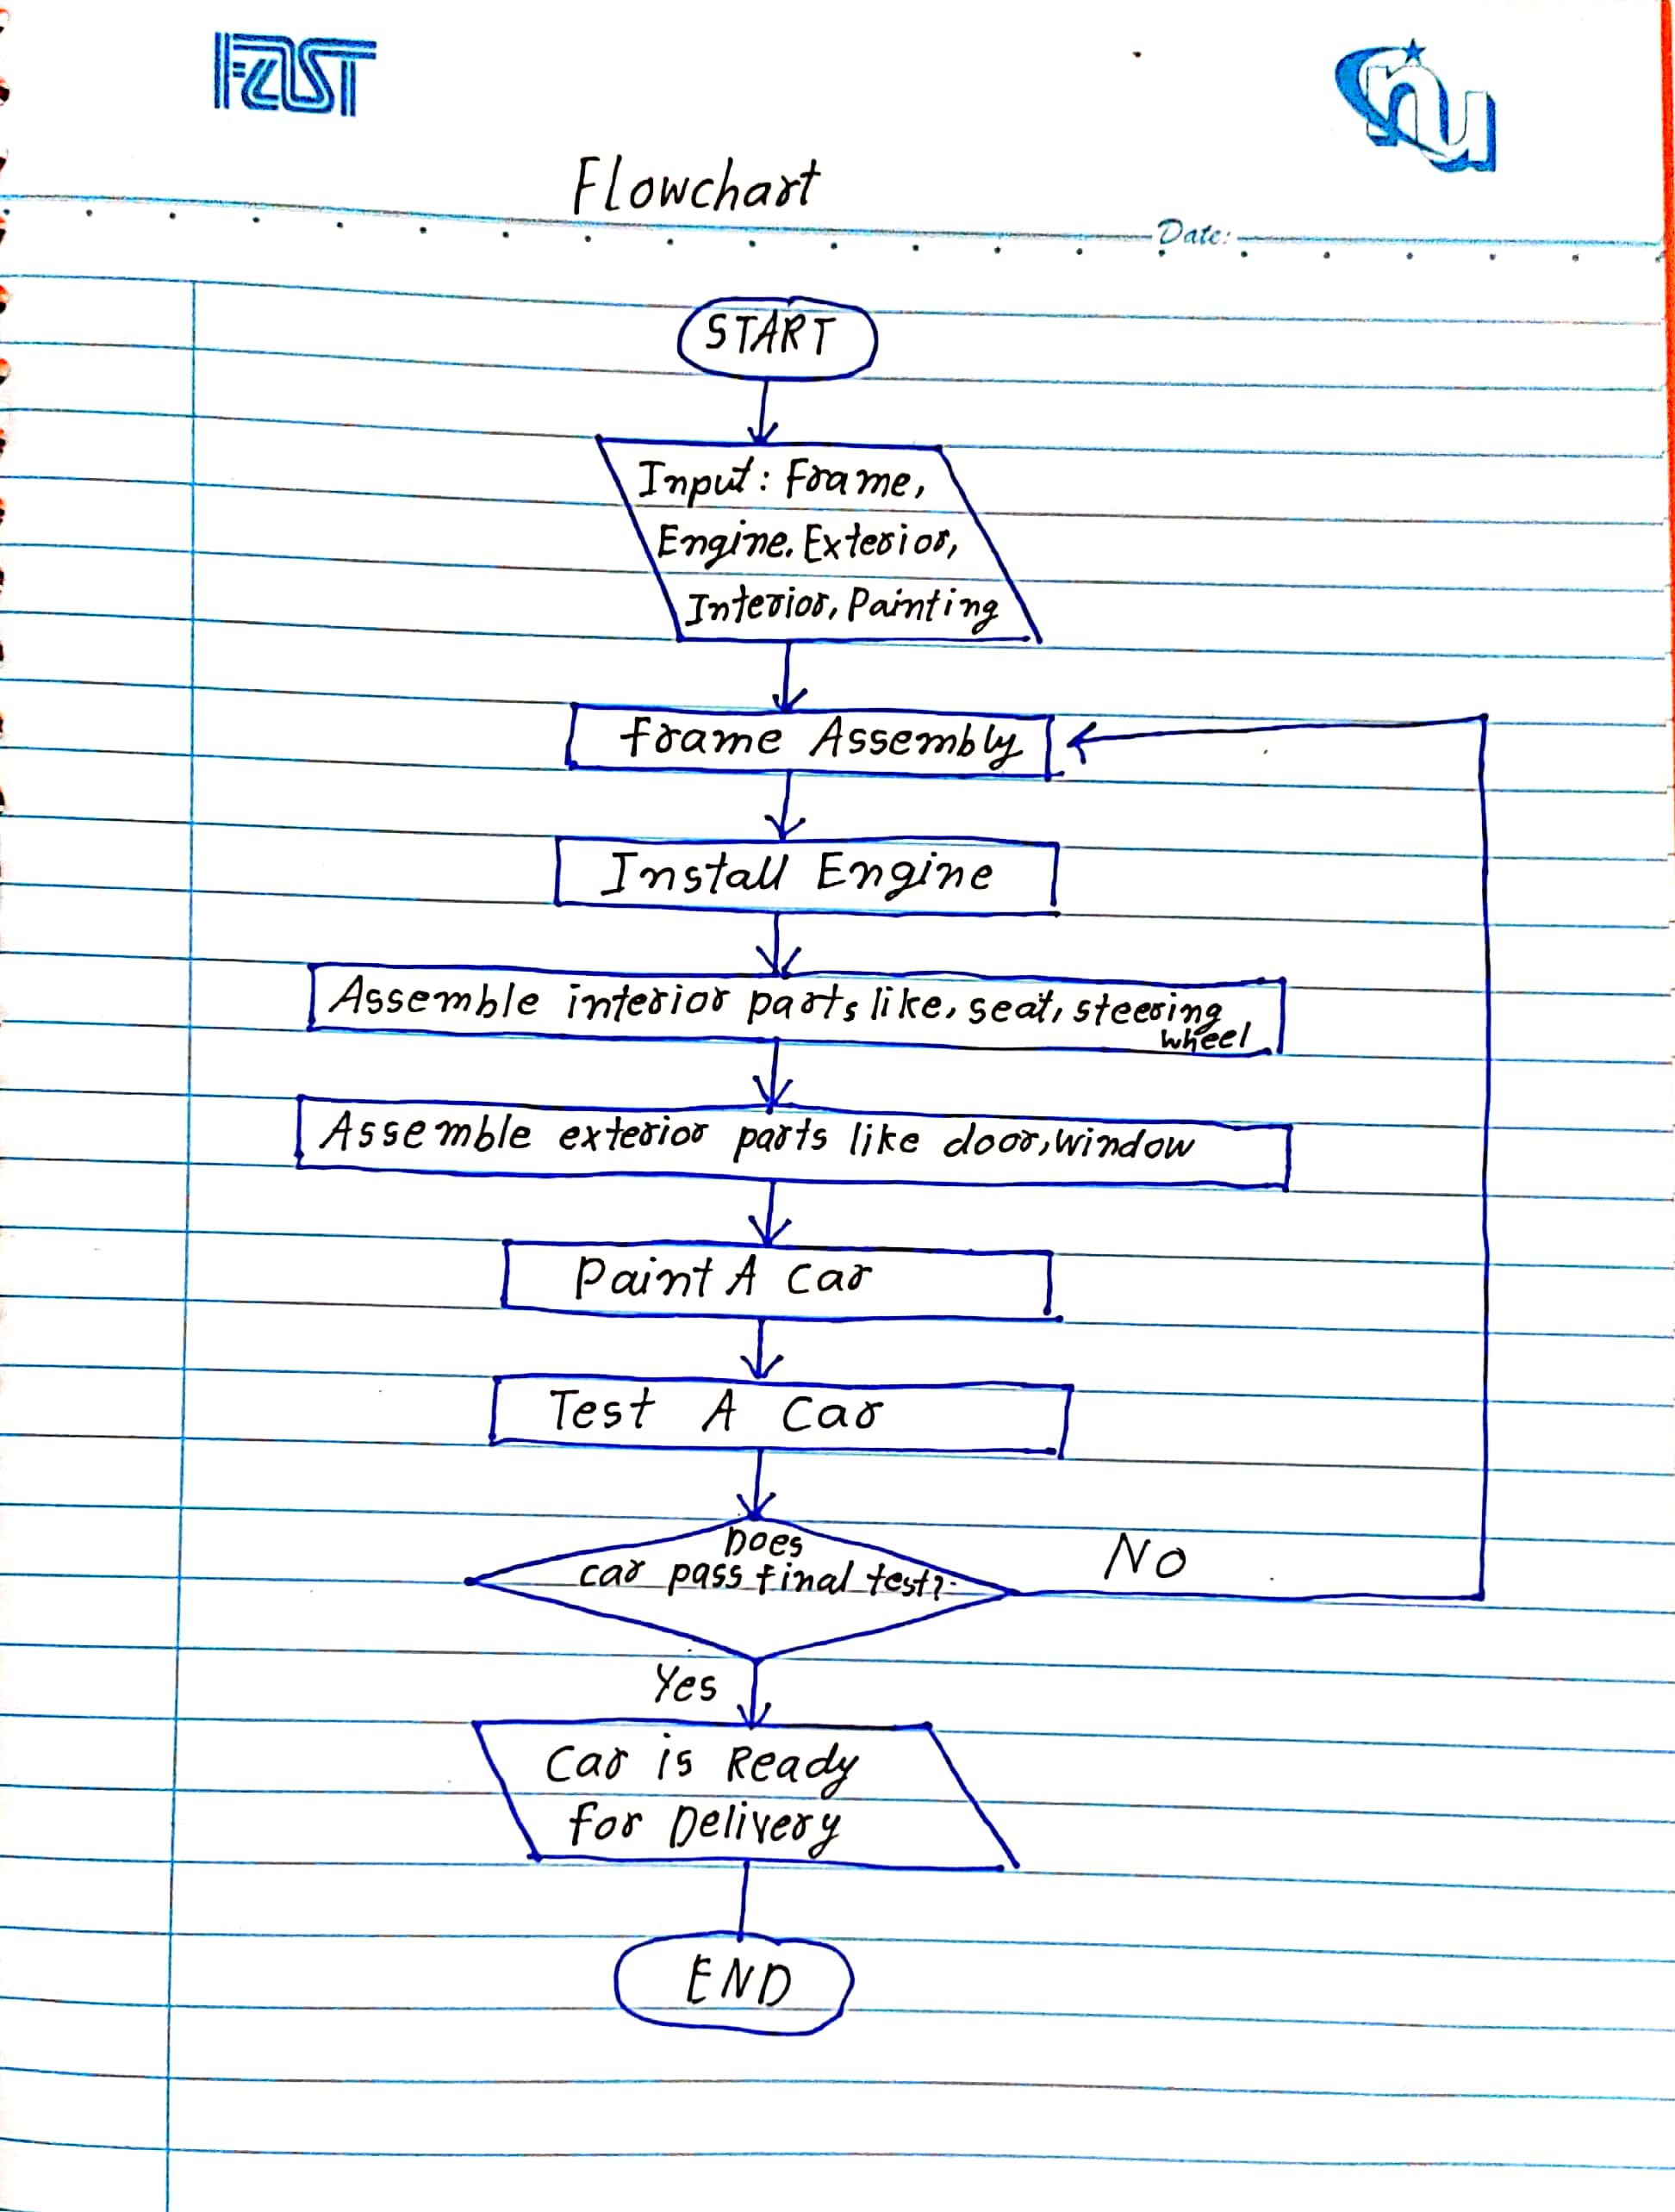 FAST
nu
Flowchart
Date:
START
Input: Frame,
Engine. Exterior,
Interior, Painting
Frame Assembly
Install Engine
Assemble interior parts like, seat, steering
wheel
Assemble exterior parts like door, window
Paint A Car
Test A Car
Does
car pass final test?
No
Yes
Car is Ready
for Delivery
END